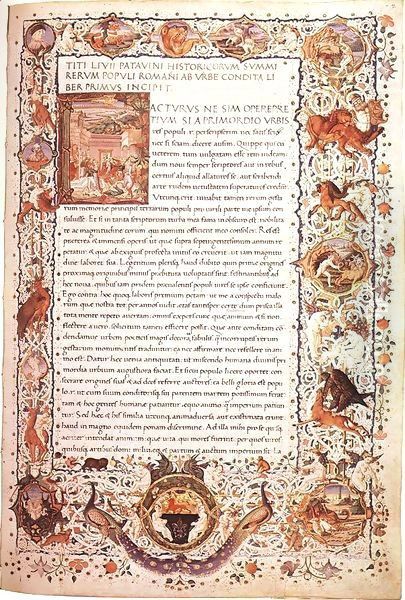 TITI LIVII PATAVINI HISTORICORVM SVMMI
RERVM POPVLI ROMANI AB VRBE CONDITA LI
BER PRIMVS INCIPIT.
ACTVRVS NE SIM OPEREPRE
TIVM SI A PRIMORDIO VRBIS
res populi .r. perscripserim nec satis scio:
nec si sciam dicere ausim. Quippe qui cu
ueterem tum uulgatam esse rem uideam:
dum noui semper scriptores aut in rebus
certius aliquid allaturos se, aut scribendi
arte rudem uetustatem superaturos
Vtcunq. erit, iuuabit tamen rerum gesta
rum memoriae principis terrarum populi pro uirili parte me ipsum con
suluisse. Et si in tanta scriptorum turba mea fama in obscuro est: nobilita
te ac magnitudine eorum qui nomini officient meo consoler. Res est
praeterea et immensi operis: ut quae supra septingentesimum annum re
petatur: et quae ab exiguis profecta initiis eo creuerit: ut iam magnitu
dine laboret sua. Legentium haud dubito quin primae origines
proximaq. originibus minus praebitura uoluptatis sint: festinantibus ad
haec noua, quibus iam pridem praeualentis populi uires se ipse conficiunt.
Ego contra hoc quoq. laboris praemium petam: ut me a conspectu malo
rum quae nostra tot per annos uidit aetas tantisper certe dum prisca illa
tota mente repeto auertam: omnis expers curae quae animum etsi non
flectere a uero, sollicitum tamen efficere possit. Quae ante conditam con
dendamue urbem poeticis magis decora fabulis quam incorruptis rerum
gestarum monumentis traduntur: ea nec affirmare nec refellere in ani
mo est. Datur haec uenia antiquitati: ut miscendo humana diuinis pri
mordia urbium augustiora faciat. Et si cui populo licere oportet con
secrare origines suas et ad deos referre auctores: ea belli gloria est popu
lo .r. ut cum suum conditorisq. sui parentem martem potissimum ferat:
tam et hoc gentes humanae patiantur aequo animo quam imperium patiun
tur. Sed haec et his similia utcunq. animaduersa aut existimata erunt
haud in magno equidem ponam discrimine. Ad illa mihi pro se quisq.
acriter intendat animum: quae uita qui mores fuerint. per quos uiros
quibusq. artibus domi militiaeq. et partum et auctum imperium sit. La